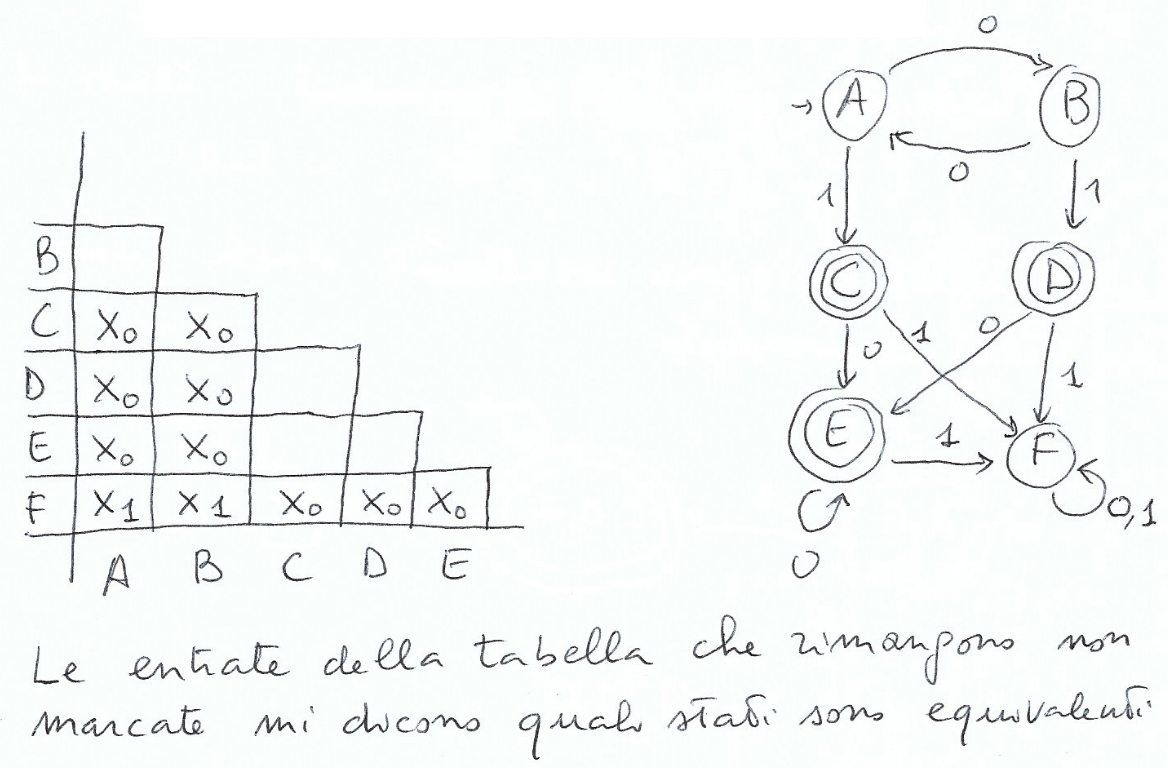 B
C X₀ X₀
D X₀ X₀
E X₀ X₀
F X1 X1 X₀ X₀ X₀
A B C D E
0
→ A B
0
1 1
C D
0 1 0 1
E 1 F
0 0,1
Le entrate della tabella che rimangono non
marcate mi dicono quali stati sono equivalenti